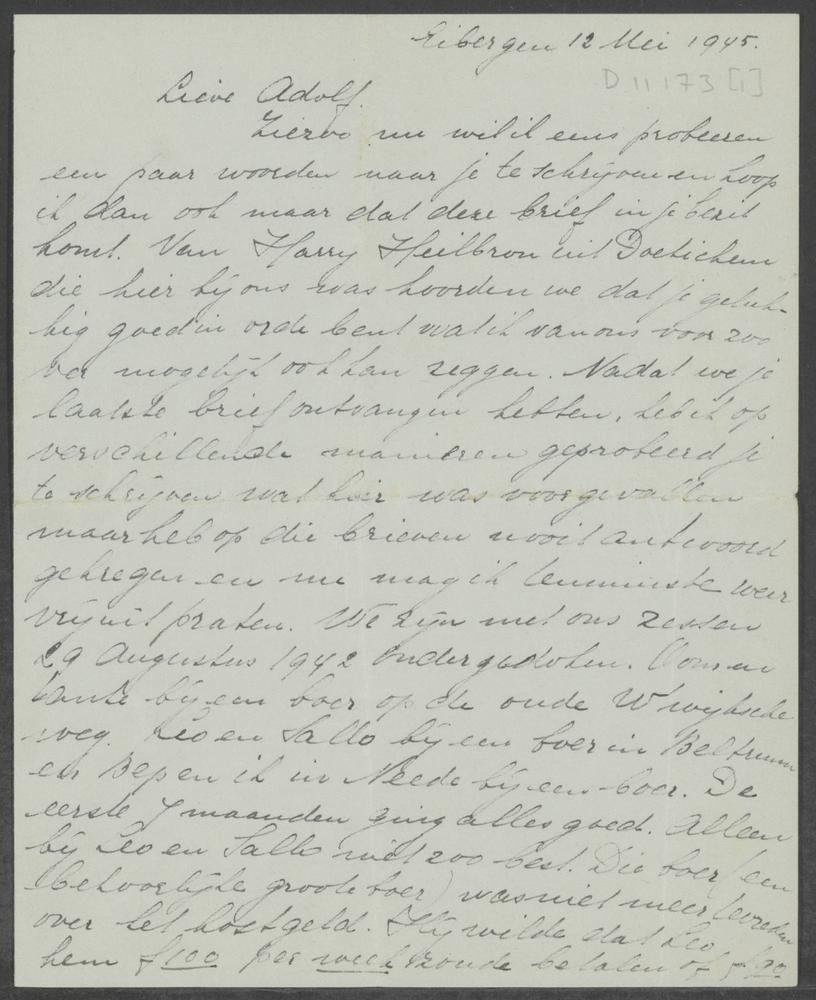 Eibergen 12 Mei 1945.
D 11173 [1]
Lieve Adolf.
Ziezoo nu wil ik eens probeeren
een paar woorden naar je te schrijven en hoop
ik dan ook maar dat deze brief in je bezit
komt. Van Harry Heilbron uit Doetichem
die hier bij ons was hoorden we dat je geluk-
kig goed in orde bent wat ik van ons voor zoo
ver mogelijk ook kan zeggen. Nadat we je
laatste brief ontvangen hebben, heb ik op
verschillende manieren geprobeerd je
te schrijven wat hier was voorgevallen
maar heb op die brieven nooit antwoord
gekregen en nu mag ik tenminste weer
vrijuit praten. We zijn met ons zessen
29 Augustus 1942 ondergedoken. Oom en
tante bij een boer op de oude W'wijksche
weg. Leo en Sallo bij een boer in Beltrum
en Bep en ik in Neede bij een boer. De
eerste 7 maanden ging alles goed. Alleen
bij Leo en Sallo niet zoo best. Die boer (een
behoorlijke groote boer) was niet meer tevreden
over het kostgeld. Hij wilde dat Leo
hem f 100 per week zoude betalen of f